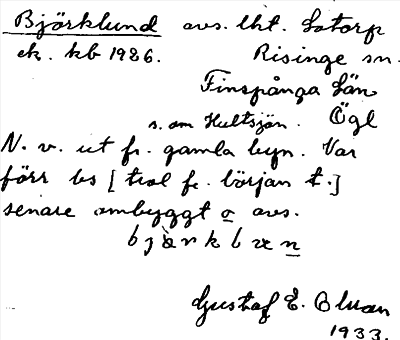 Björklund avs. lht. Lotorp
ek. kb 1926. Risinge sn.
Finspånga län
s. om Hultsjön. Ögl
N. v. ut fr. gamla byn. Var
förr bs [trol fr. början t.]
senare ombyggt o avs.
Gustaf E. Blman
1933.